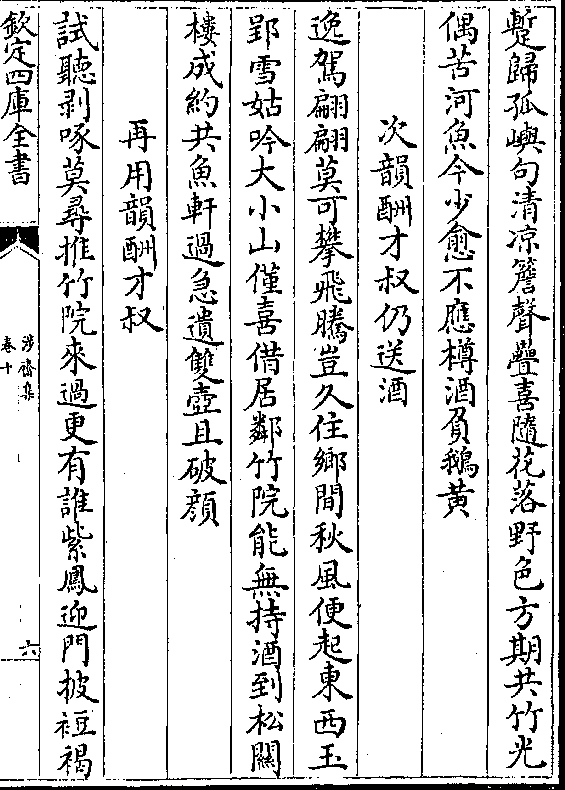 蹔歸孤嶼句清凉簷聲疊喜隨花落野色方期共竹光
偶苦河魚今少愈不應樽酒負鵝黄
次韻酬才叔仍送酒
逸駕翩翩莫可攀飛騰豈久住鄉間秋風便起東西玉
郢雪姑吟大小山僅喜借居鄰竹院能無持酒到松關
樓成約共魚軒過急遣雙壺且破顔
再用韻酬才叔
試聽剥啄莫尋推竹院來過更有誰紫鳳迎門披裋褐
欽定四庫全書
涉齋集
卷十
六